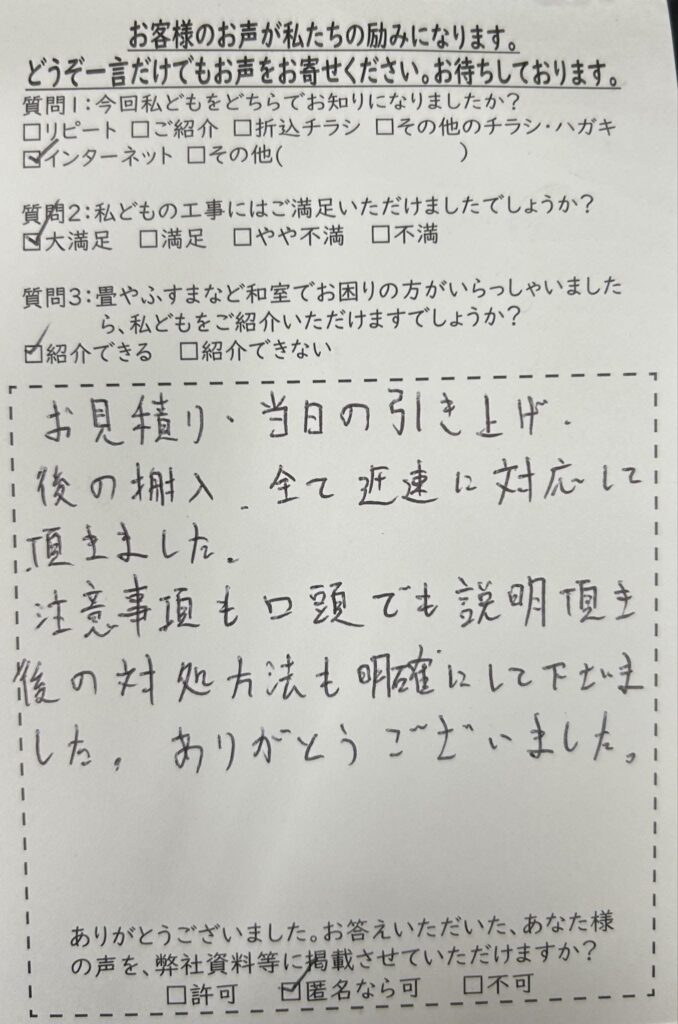 お客様のお声が私たちの励みになります。
どうぞ一言だけでもお声をお寄せください。お待ちしております。
質問1:今回私どもをどちらでお知りになりましたか?
□リピート □ご紹介 □折込チラシ □その他のチラシ・ハガキ
☑インターネット □その他( )
質問2:私どもの工事にはご満足いただけましたでしょうか?
☑大満足 □満足 □やや不満 □不満
質問3:畳やふすまなど和室でお困りの方がいらっしゃいました
ら、私どもをご紹介いただけますでしょうか?
☑紹介できる □紹介できない
お見積り、当日の引き上げ、
後の搬入、全て迅速に対応して
頂きました。
注意事項も口頭でも説明頂き
後の対処方法も明確にして下さいま
した。ありがとうございました。
ありがとうございました。お答えいただいた、あなた様
の声を、弊社資料等に掲載させていただけますか?
□許可 ☑匿名なら可 □不可